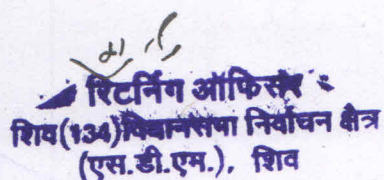 रिटर्निंग ऑफिसर
शिव(134)विधानसभा निर्वाचन क्षेत्र
(एस.डी.एम.), शिव